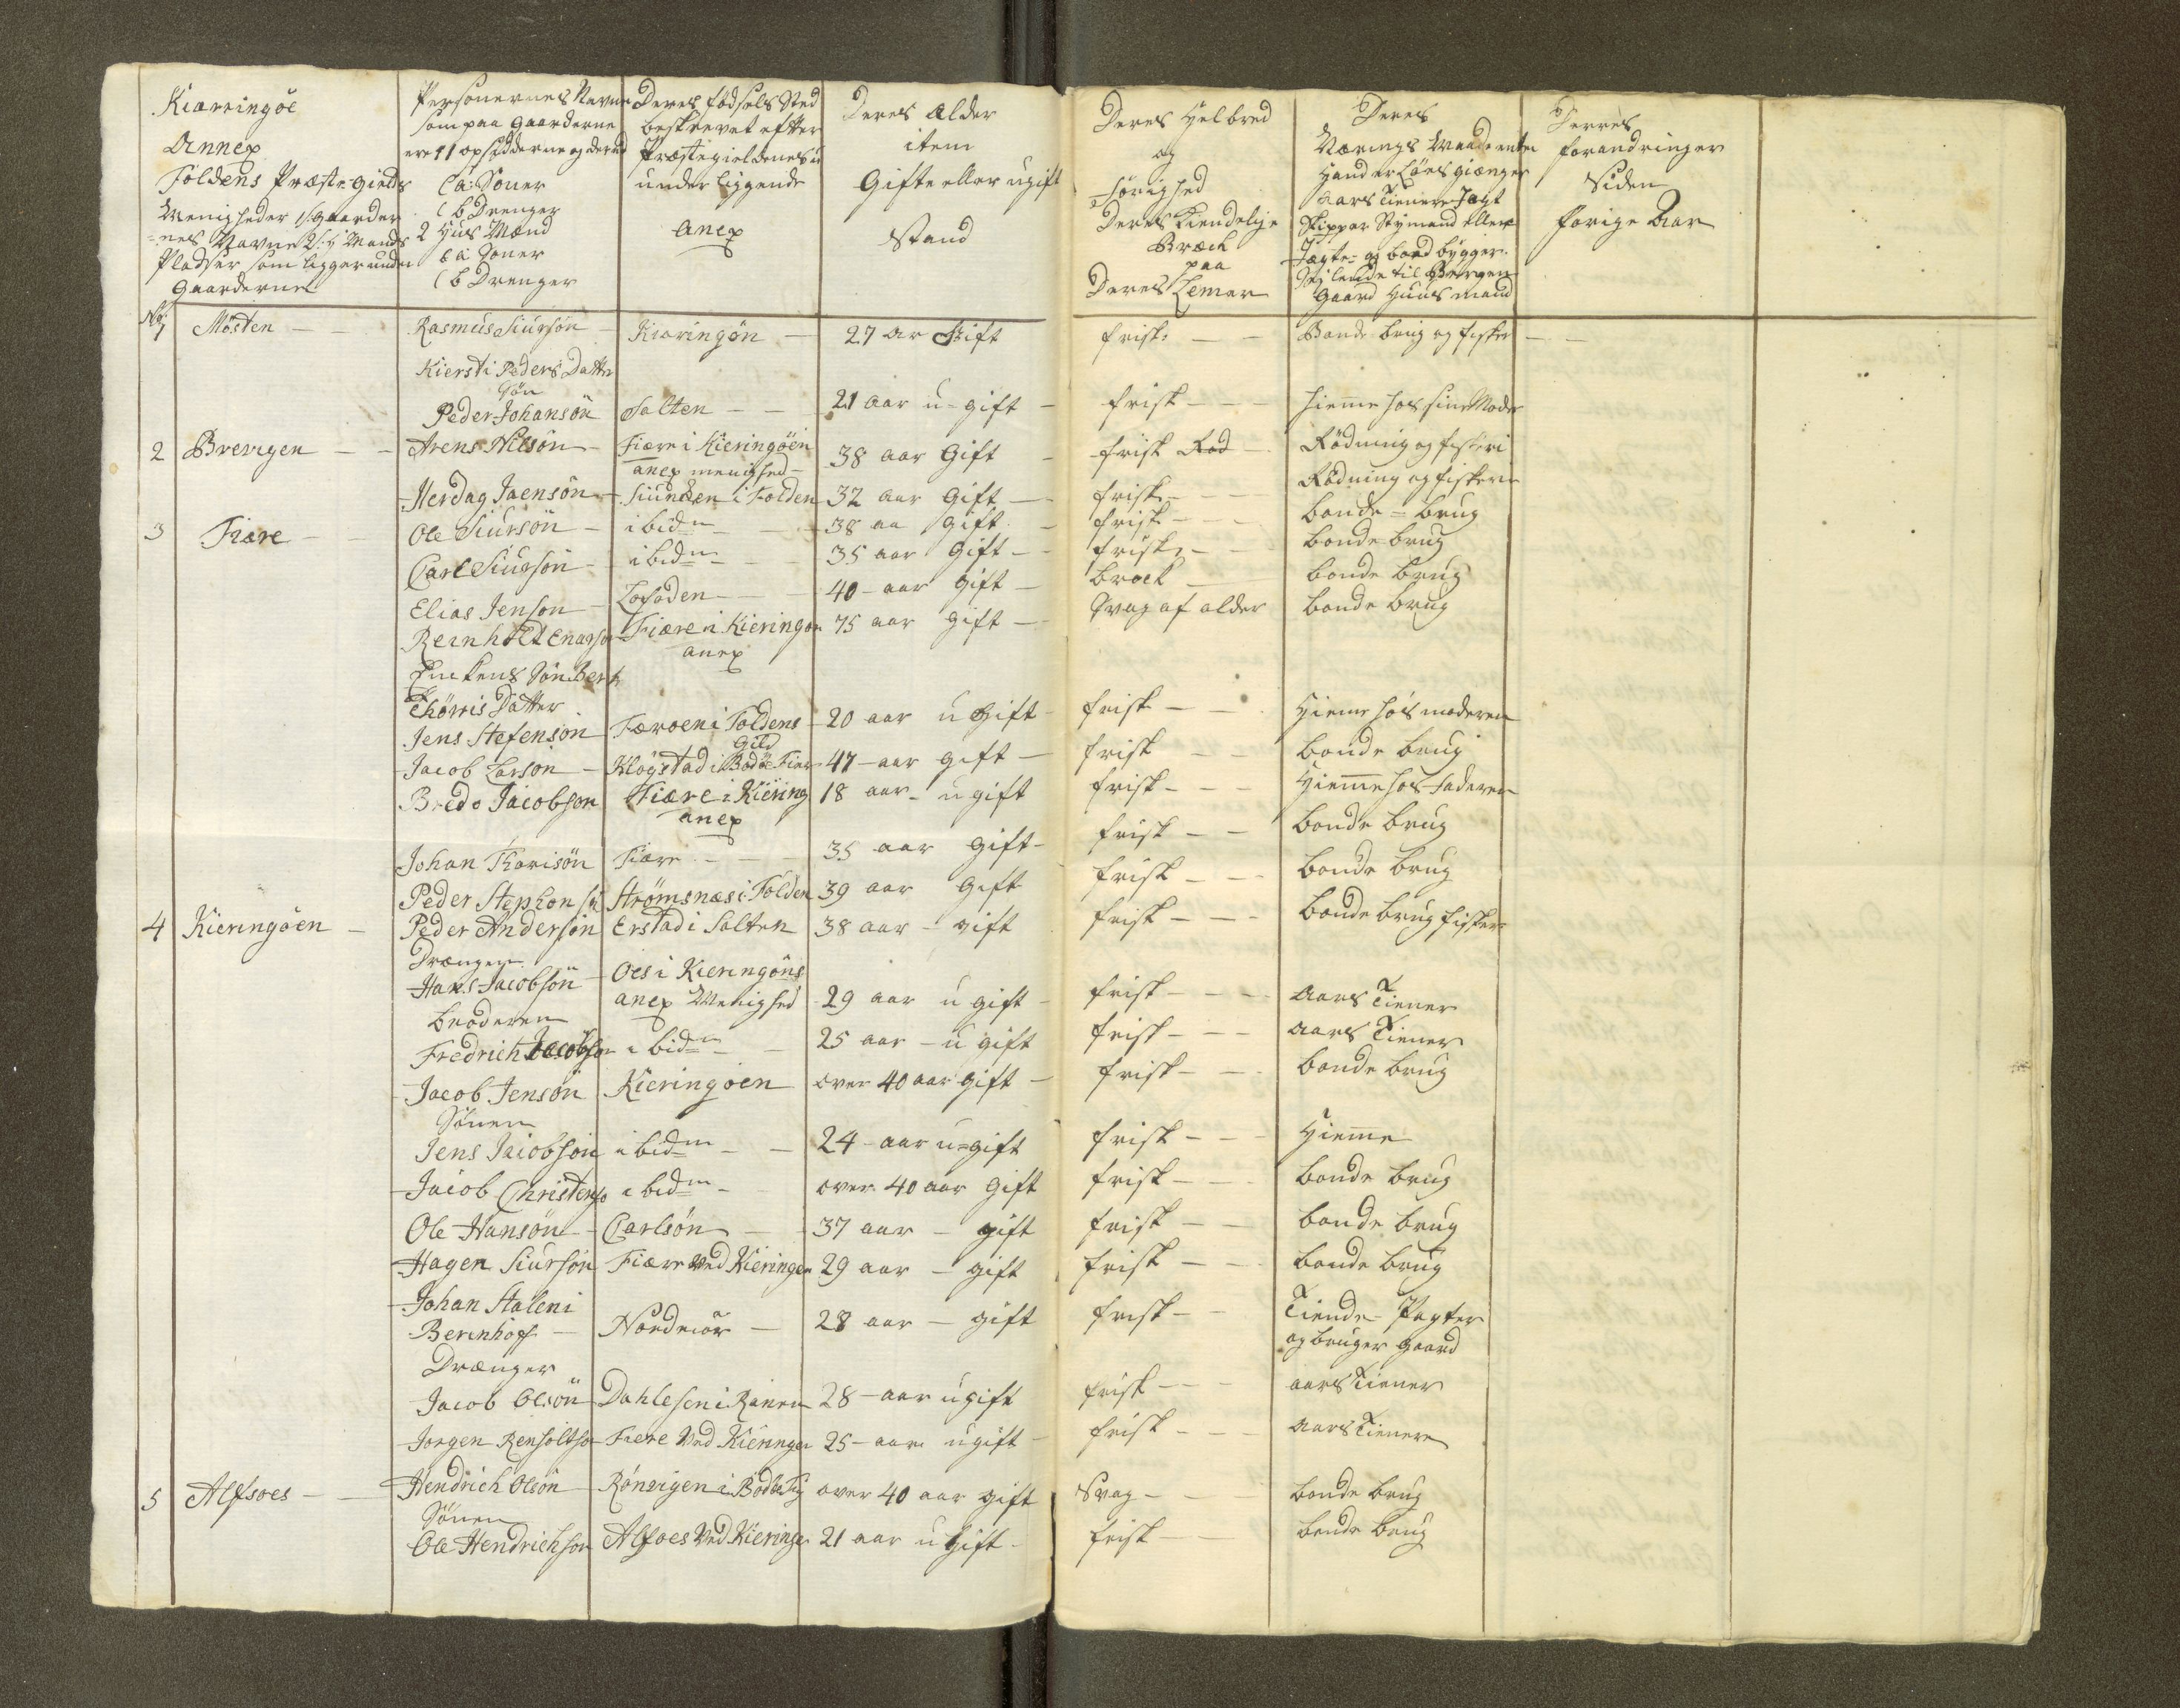 Kiærringöe
Annex
Foldens Præste-Gields
Menigheder 1/ Gaarder
nes Navne 2/ Mands
Pladser som ligger under
Gaarderne
Personernes Navne
som paa Gaarderne
ere 1 opsidderne og derved
(a: Söner
(b Drenger
2 Huus Mænd
(a Söner
(b Drenger
Deres födsels Sted
beskrevet efter
Præstegieldenes
underliggende
anex
Deres Alder
item
Gifte eller ugift
stand
Deres Helbred
og
förighed
Deres Kiendelige
Bræck
paa
Deres Lemer
Deres
Nærings Maade enten
Hand er Löes giænger
Aars Tienere Jagt
Skipper Styrmand eller
Jægte- og baad bygger
Seylende til Bergen
Gaard Huusmand
Derres
forandringer
siden
forige Aar
No
1 Mosten — Rasmus Siursön — Kiæringön — 27 ar Gift frisk — Bonde brug og fisker
Kiersti Peders Datter
Sön
Peder Johansön Salten — 21 aar u-gift — frisk — hieme hos sine Moder
2 Brevigen — Arens Nilsön — Fiære i Kieringöen 38 aar Gift frisk Röd — Rödning og fiskeri
anex menighed —
Herdag Jaensön — Siunden i Folden 32 aar Gift — frisk — Rödning og fiskeri
3 Fiære — Ole Siursön — ibidm — 38 aa gift — frisk — bonde-brug
Carl Siursön — ibidm — 35 aar Gift — frisk — bonde-brug
Elias Jenson — Lofoden — 40 - aar gift — brock — bonde brug
Reinholt Enarson Fiære i Kieringöe 75 aar gift — Svag af alder bonde brug
anex
Enkens Sön Berit
Thörris Datter
Jens Stefenson Færoen i Foldens — 20 aar ugift — frisk — Hieme hos moderen
Gield
Jacob Larson — Klogstad i Bodöe Fier 47 - aar gift — frisk — bonde brug
Bredo Jacobson Fiære i Kiering 18 aar - ugift frisk — Hieme hos Faderen
anex
Johan Thorisön Fiære — 35 aar gift — frisk — bonde brug
Peder Stephonsö Strömsnæs i Folden 39 aar Gift frisk — bonde brug
4 Kieringöen — Peder Andersön Erstad i Salten 38 aar - gift frisk — bonde brug fisker
Drænger
Hans Jacobsön — Oes i Kieringöns
anex Menighed 29 aar ugift — frisk — aars Tiener
broderen
Fredrich Jacobson ibidm — 25 aar - ugift frisk — aars Tiener
Jacob Jensön Kieringöen over 40 aar gift — frisk — bonde brug
Sönen
Jens Jacobson ibidm — 24 - aar u-gift frisk — Hieme
Jacob Christenso ibidm — over 40 aar Gift frisk — bonde brug
Ole Hansön — Carlsön — 37 aar - gift frisk — bonde brug
Hagen Siursön Fiære ved Kieringen 29 aar - gift frisk — bonde brug
Johan Staleni
Berinhof — Nordmör — 28 aar - gift frisk — Tiende-Pagter
og bruger gaard
Drænger
Jacob Olsön Dahlesen i Ranen 28 - aar ugift frisk — aars Tiener
Jorgen Renholtson Fiere ved Kieringen 25 - aar ugift — frisk — aars Tienere
5 Alfsoes — Hendrich Olsön Rönvigen i Bodöe over 40 aar gift Svag — bonde brug
Sönen
Ole Hendrichson Alfsoes ved Kieringen 21 aar ugift — frisk — bonde brug